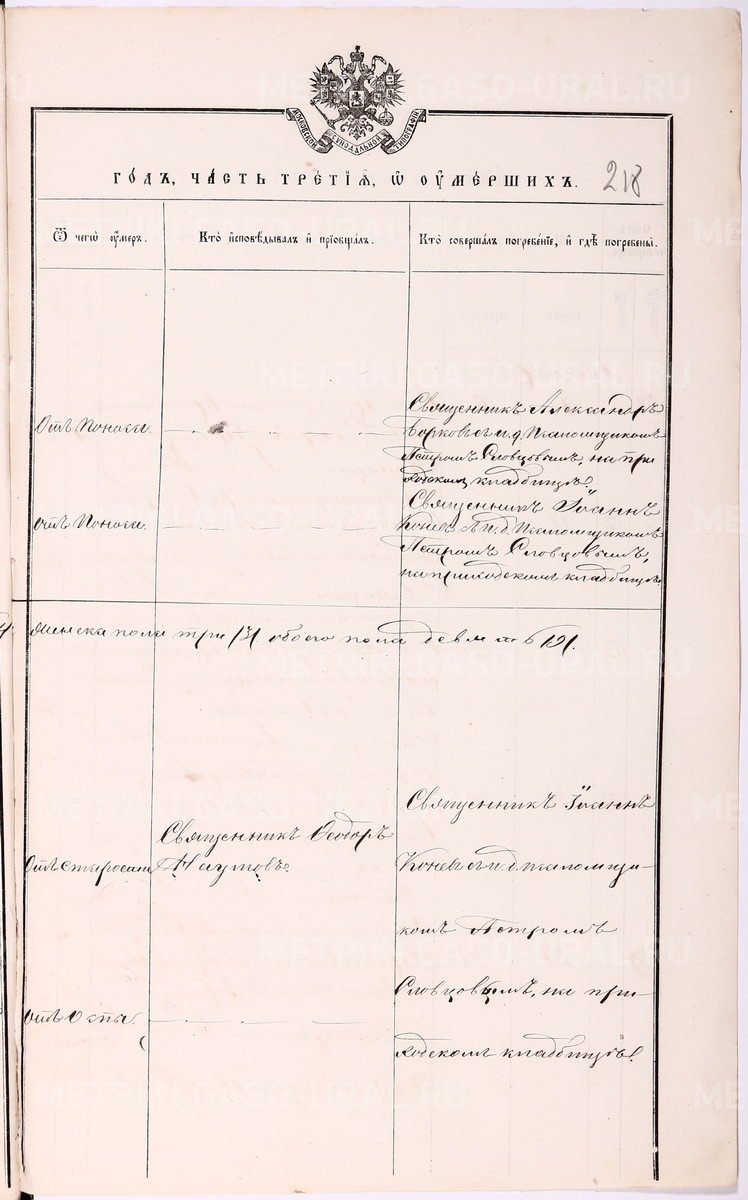 МОСКОВСКОЙ СѴНОДАЛЬНОЙ ТИПОГРАФІИ
ГО́ДЪ, ЧА́СТЬ ТРЕ́ТІѦ, Ѡ҆ ОУ҆МЕ́РШИХЪ.
218
Ѿ чегѡ̀ оу҆́меръ.
Кто̀ и҆сповѣ́дывалъ и҆ прїѡбща́лъ.
Кто̀ соверша́лъ погребе́нїе, и҆ гдѣ̀ погребены̀.
Отъ поноса.
Священникъ Александръ
Борковъ съ и. д. псаломщикомъ
Петромъ Словцовымъ, на при
ходскомъ кладбищѣ.
отъ поноса.
Священникъ Іоаннъ
Коневъ съ и. д. псаломщикомъ
Петромъ Словцовымъ,
на приходскомъ кладбищѣ.
женска пола три /3/. обоего пола девять /9/.
Отъ старости
Священникъ Ѳеодоръ
Наумовъ.
Священникъ Іоаннъ
Коневъ съ и. д. псаломщи-
комъ Петромъ
Словцовымъ, на при-
ходскомъ кладбищѣ.
Отъ оспы.
METRIKI.GASO-URAL.RU